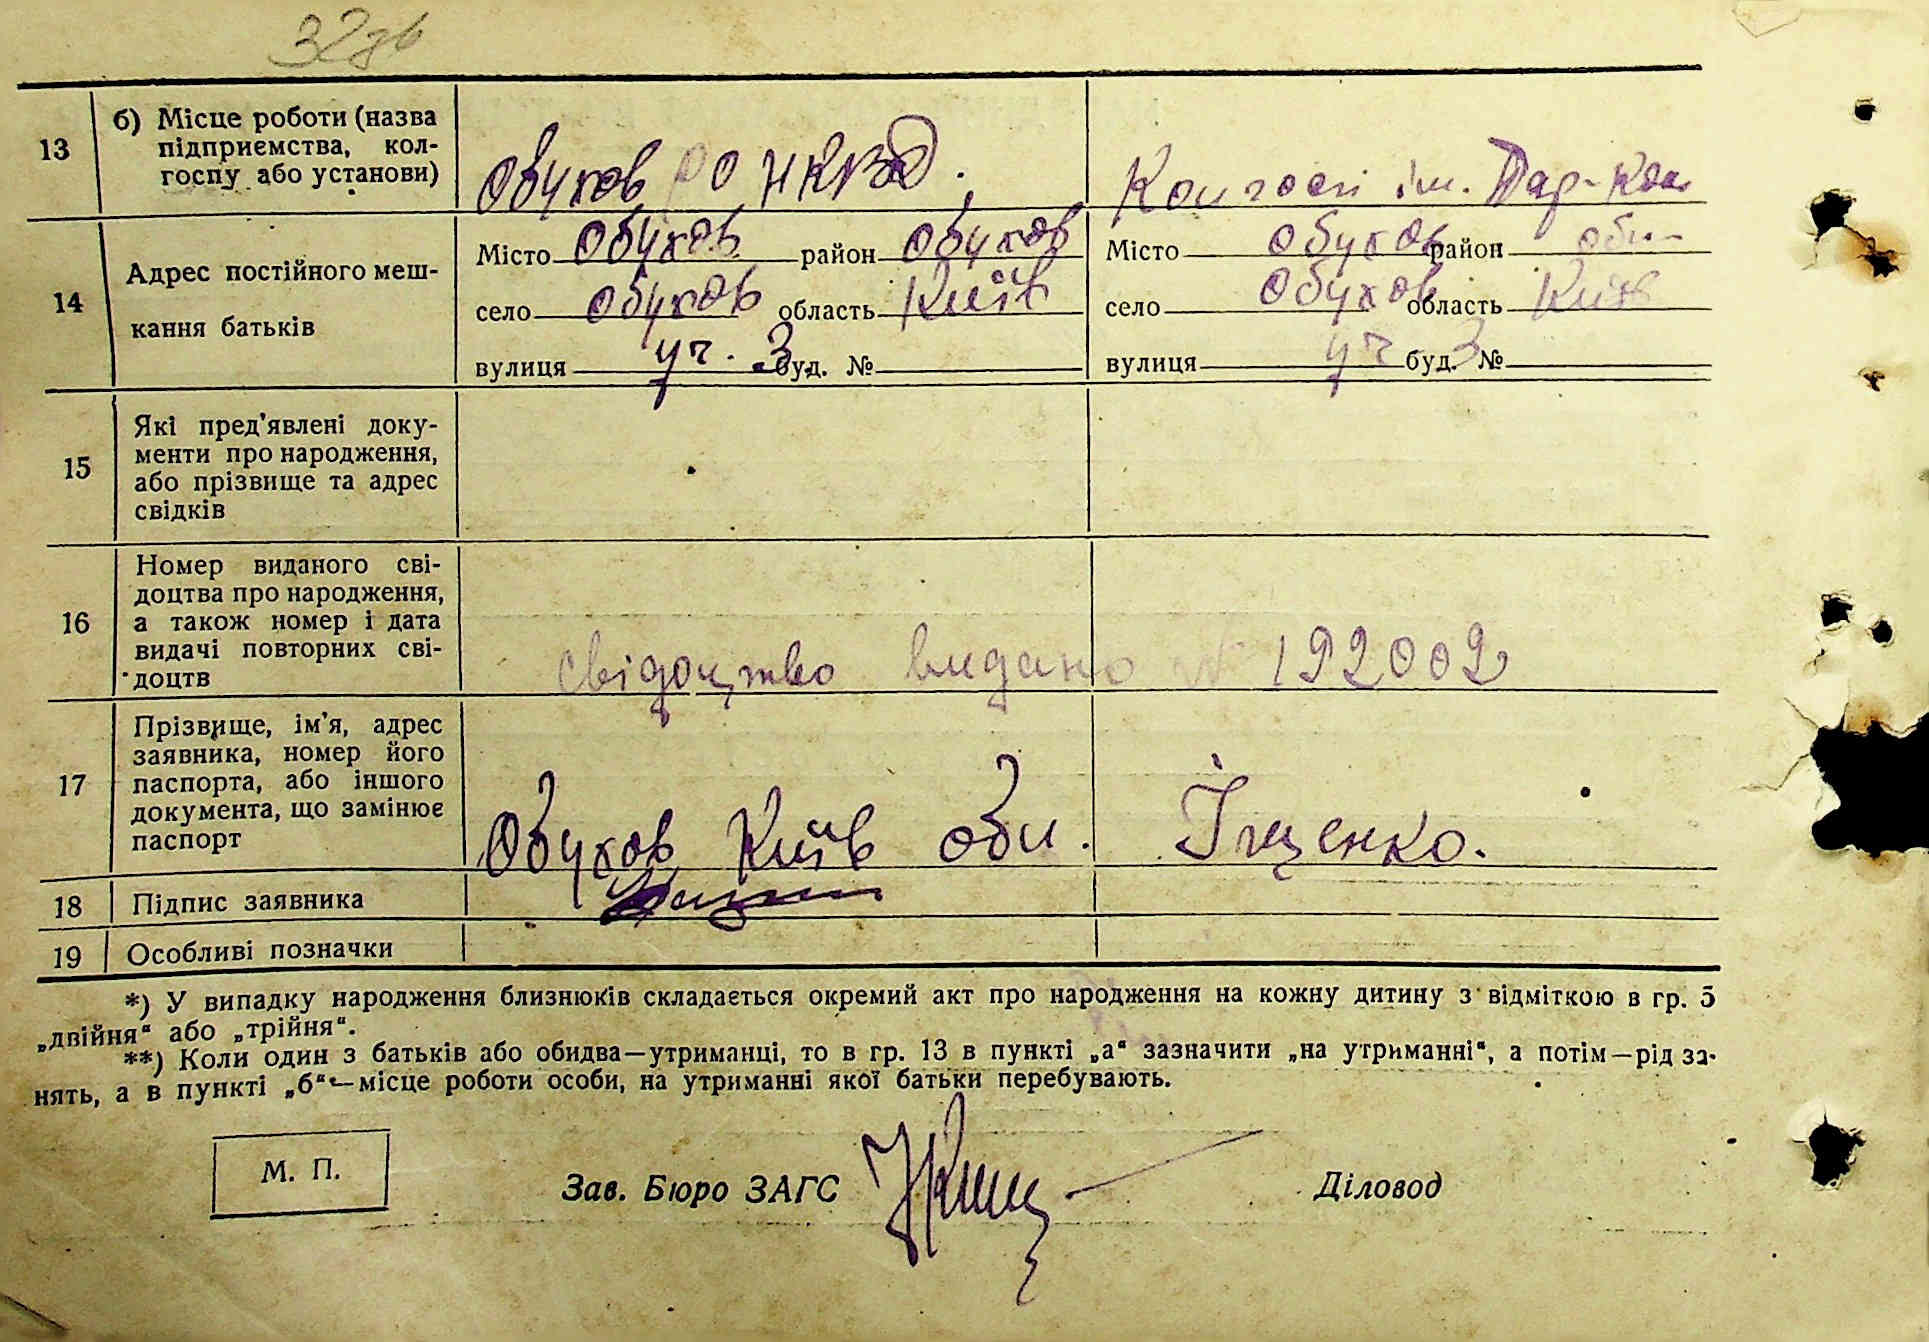 32зв
13
б) Місце роботи (назва
підприємства, кол-
госпу або установи)
Обухов РО НКВД.
Колгосп ім. Пар-Ком.
14
Адрес постійного меш-
кання батьків
Місто Обухов район Обухов
село Обухов область Київ
вулиця уч. 3 буд. №
Місто Обухов район обу-
село Обухов область Київ
вулиця уч 3 буд. №
15
Які пред'явлені доку-
менти про народження,
або прізвище та адрес
свідків
16
Номер виданого сві-
доцтва про народження,
а також номер і дата
видачі повторних сві-
доцтв
свідоцтво видано № 192002
17
Прізвище, ім'я, адрес
заявника, номер його
паспорта, або іншого
документа, що замінює
паспорт
Обухов Київ обл. Іщенко.
18
Підпис заявника
19
Особливі позначки
*) У випадку народження близнюків складається окремий акт про народження на кожну дитину з відміткою в гр. 5
„двійня“ або „трійня“.
**) Коли один з батьків або обидва—утриманці, то в гр. 13 в пункті „а“ зазначити „на утриманні“, а потім—рід за-
нять, а в пункті „б“—місце роботи особи, на утриманні якої батьки перебувають.
М. П.
Зав. Бюро ЗАГС
Діловод